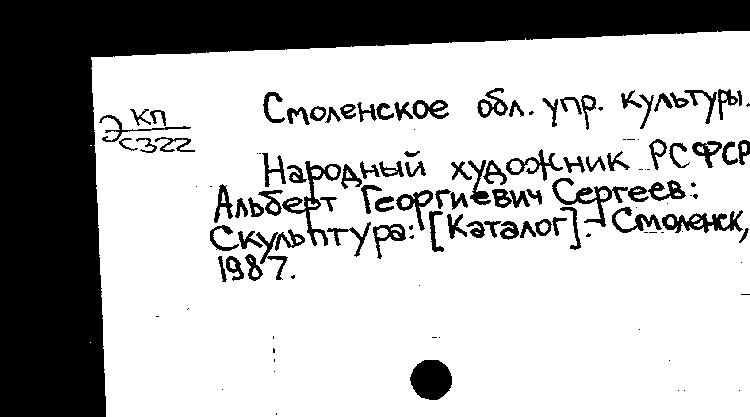 Смоленское обл. упр. культуры.
Э КП
С322
Народный художник РСФСР
Альберт Георгиевич Сергеев:
Скульптура: [Каталог].- Смоленск,
1987.